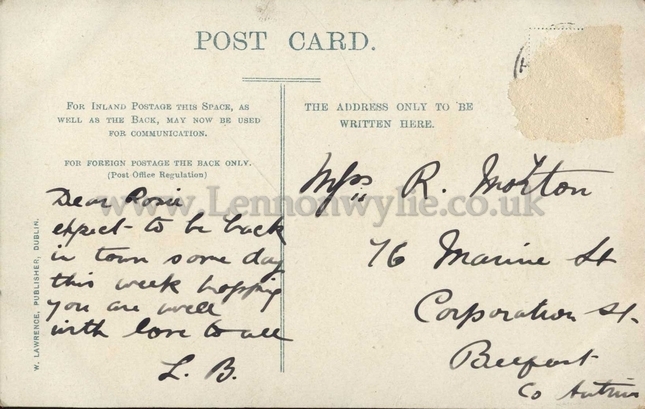 POST CARD.
FOR INLAND POSTAGE THIS SPACE, AS
WELL AS THE BACK, MAY NOW BE USED
FOR COMMUNICATION.
FOR FOREIGN POSTAGE THE BACK ONLY.
(Post Office Regulation)
THE ADDRESS ONLY TO BE
WRITTEN HERE.
Dear Rosie
expect to be back
in town some day
this week hopping
you are well
with love to all
L. B.
R. Morton
76 Marine St
Corporation St.
Belfast
Co Antrim
W. LAWRENCE, PUBLISHER, DUBLIN.
www.Lennonwylie.co.uk